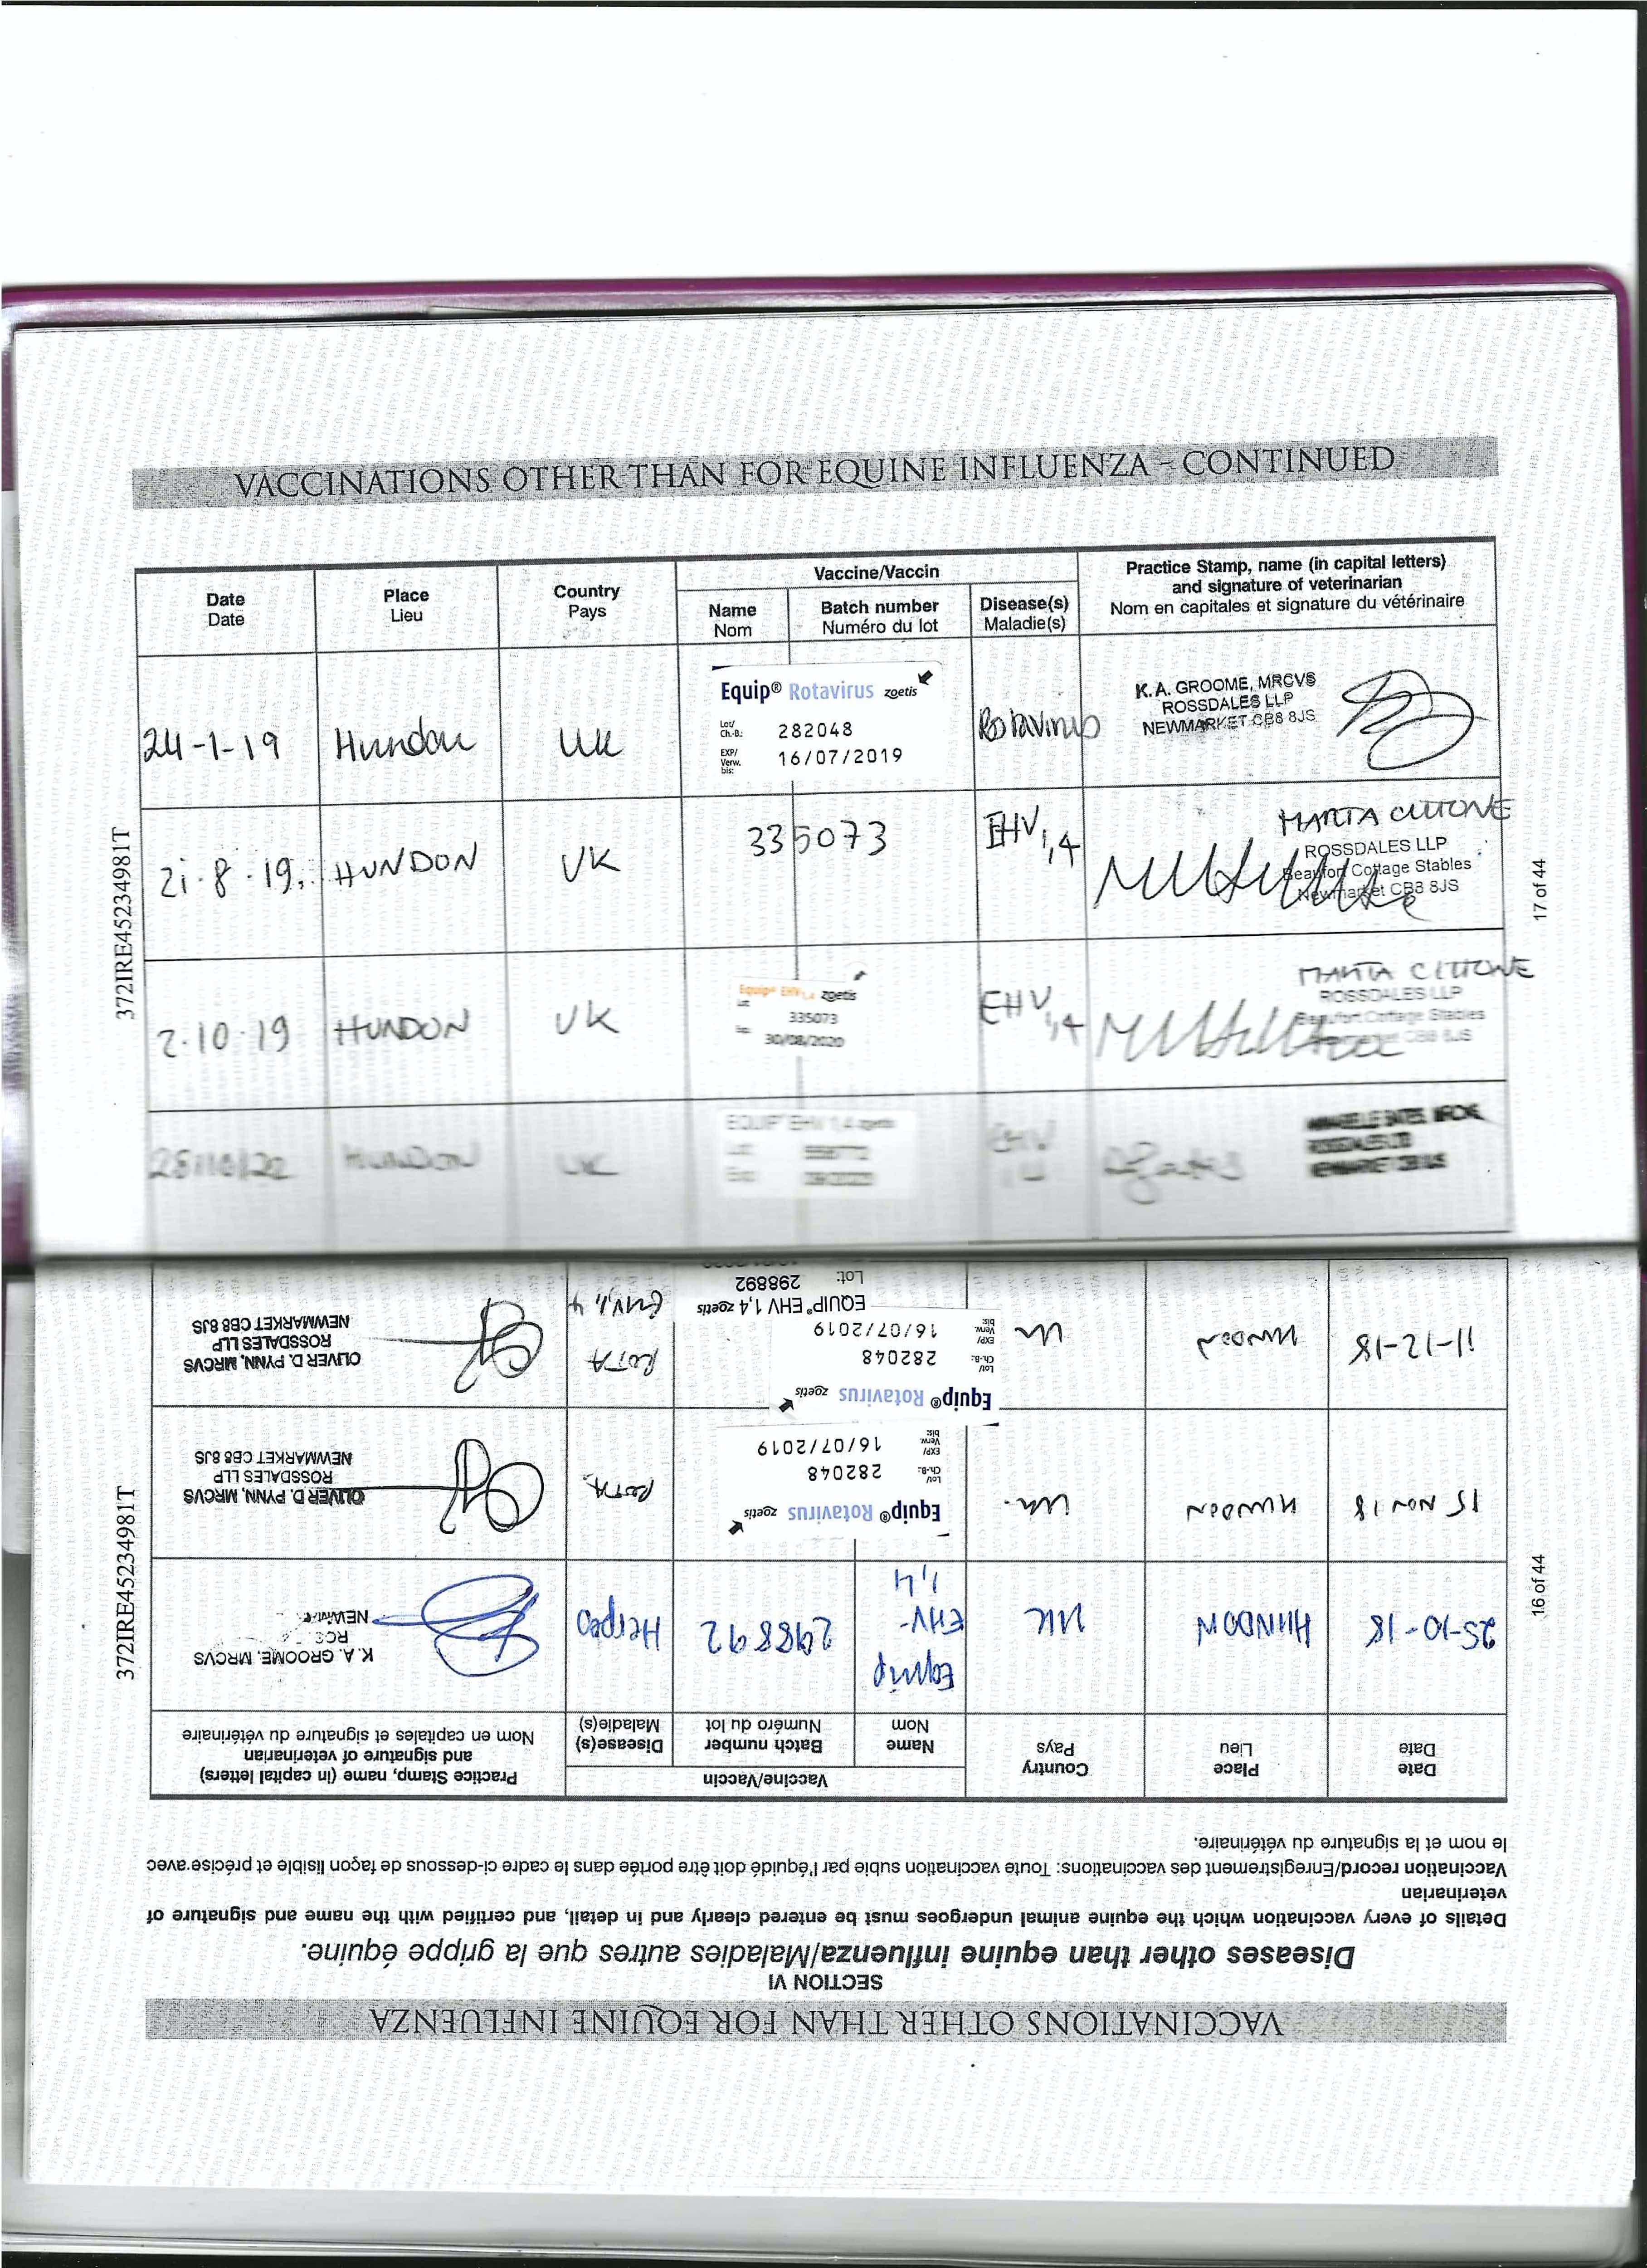 VACCINATIONS OTHER THAN FOR EQUINE INFLUENZA - CONTINUED
Date
Date
Place
Lieu
Country
Pays
Vaccine/Vaccin
Name
Nom
Batch number
Numéro du lot
Disease(s)
Maladie(s)
Practice Stamp, name (in capital letters)
and signature of veterinarian
Nom en capitales et signature du vétérinaire
24-1-19
Hundon
UK
Equip® Rotavirus zoetis
Lot/
Ch.-B.: 282048
EXP/
Verw. 16/07/2019
bis:
Rotavirus
K. A. GROOME, MRCVS
ROSSDALES LLP
NEWMARKET CB8 8JS
21·8·19.
HUNDON
UK
335073
EHV 1,4
MARTA CUTTONE
ROSSDALES LLP
Beaufort Cottage Stables
Newmarket CB8 8JS
2·10·19
HUNDON
UK
Equip® EHV 1,4 zoetis
335073
30/08/2020
EHV 1,4
MARTA CUTTONE
ROSSDALES LLP
Beaufort Cottage Stables
CB8 8JS
HUNDON
UK
EQUIP® EHV 1,4 zoetis
EHV
372IRE45234981T
17 of 44
VACCINATIONS OTHER THAN FOR EQUINE INFLUENZA
SECTION VI
Diseases other than equine influenza/Maladies autres que la grippe équine.
Details of every vaccination which the equine animal undergoes must be entered clearly and in detail, and certified with the name and signature of
veterinarian
Vaccination record/Enregistrement des vaccinations: Toute vaccination subie par l'équidé doit être portée dans le cadre ci-dessous de façon lisible et précise avec
le nom et la signature du vétérinaire.
Date
Date
Place
Lieu
Country
Pays
Vaccine/Vaccin
Name
Nom
Batch number
Numéro du lot
Disease(s)
Maladie(s)
Practice Stamp, name (in capital letters)
and signature of veterinarian
Nom en capitales et signature du vétérinaire
25-10-18
HUNDON
UK
Equip
EHV-
1,4
298892
Herpes
K. A. GROOME, MRCVS
15 NOV 18
HUNDON
UK
Equip® Rotavirus zoetis
Lot/
Ch.-B.: 282048
EXP/
Verw. 16/07/2019
bis:
ROTA
OLIVER D. PYNN, MRCVS
ROSSDALES LLP
NEWMARKET CB8 8JS
11-12-18
HUNDON
UK
Equip® Rotavirus zoetis
Lot/
Ch.-B.: 282048
EXP/
Verw. 16/07/2019
bis:
EQUIP® EHV 1,4 zoetis
Lot: 298892
ROTA
EHV 1,4
OLIVER D. PYNN, MRCVS
ROSSDALES LLP
NEWMARKET CB8 8JS
372IRE45234981T
16 of 44